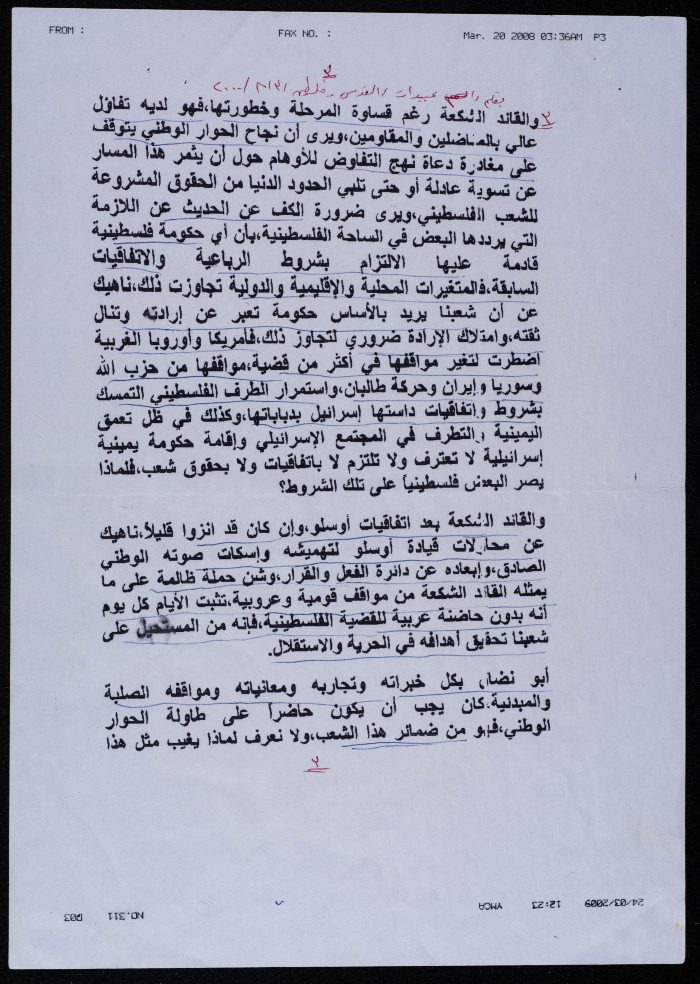 FROM :
FAX NO. :
Mar. 20 2008 03:36AM P3
٢
بقلم راسم عبيدات / القدس
٣
والقائد الشكعة رغم قساوة المرحلة وخطورتها،فهو لديه تفاؤل
عالي بالمناضلين والمقاومين،ويرى أن نجاح الحوار الوطني يتوقف
على مغادرة دعاة نهج التفاوض للأوهام حول أن يثمر هذا المسار
عن تسوية عادلة أو حتى تلبي الحدود الدنيا من الحقوق المشروعة
للشعب الفلسطيني،ويرى ضرورة الكف عن الحديث عن اللازمة
التي يرددها البعض في الساحة الفلسطينية،بأن أي حكومة فلسطينية
قادمة عليها الالتزام بشروط الرباعية والاتفاقيات
السابقة،فالمتغيرات المحلية والإقليمية والدولية تجاوزت ذلك،ناهيك
عن أن شعبنا يريد بالأساس حكومة تعبر عن إرادته وتنال
ثقته،وامتلاك الإرادة ضروري لتجاوز ذلك،فأمريكا وأوروبا الغربية
اضطرت لتغير مواقفها في أكثر من قضية،مواقفها من حزب الله
وسوريا وإيران وحركة طالبان،واستمرار الطرف الفلسطيني التمسك
بشروط واتفاقيات داستها إسرائيل بدباباتها،وكذلك في ظل تعمق
اليمينية والتطرف في المجتمع الإسرائيلي وإقامة حكومة يمينية
إسرائيلية لا تعترف ولا تلتزم لا باتفاقيات ولا بحقوق شعب،فلماذا
يصر البعض فلسطينياً على تلك الشروط؟
والقائد الشكعة بعد اتفاقيات أوسلو،وإن كان قد انزوا قليلاً،ناهيك
عن محاولات قيادة أوسلو لتهميشه وإسكات صوته الوطني
الصادق،وإبعاده عن دائرة الفعل والقرار،وشن حملة ظالمة على ما
يمثله القائد الشكعة من مواقف قومية وعروبية،تثبت الأيام كل يوم
أنه بدون حاضنة عربية للقضية الفلسطينية،فإنه من المستحيل على
شعبنا تحقيق أهدافه في الحرية والاستقلال.
أبو نضال بكل خبراته وتجاربه ومعانياته ومواقفه الصلبة
والمبدئية،كان يجب أن يكون حاضراً على طاولة الحوار
الوطني،فهو من ضمائر هذا الشعب،ولا نعرف لماذا يغيب مثل هذا
٢
24/03/2009 12:23 YMCA NO.311 P03